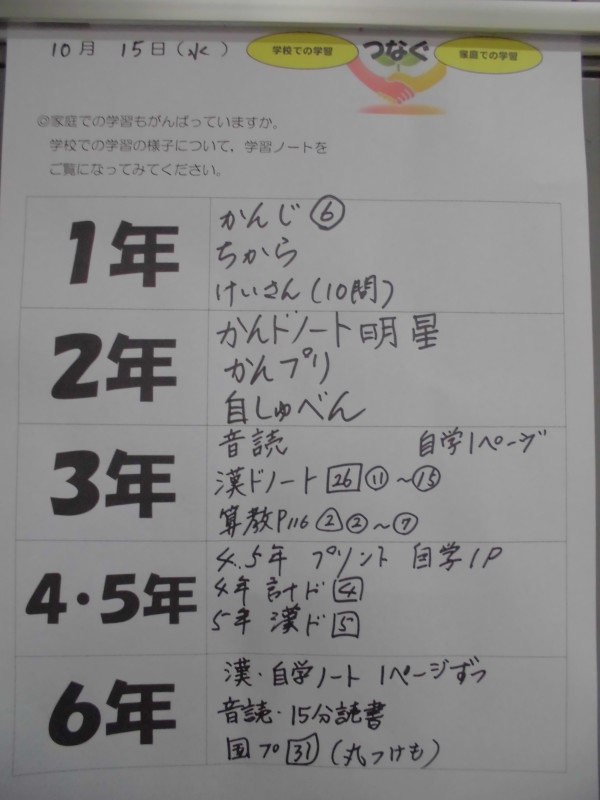 10月 15日(水)
学校での学習 つなぐ 家庭での学習
◎家庭での学習もがんばっていますか。
学校での学習の様子について、学習ノートを
ご覧になってみてください。
1年
かんじ⑥
ちから
けいさん(10問)
2年
かんドノート 明星
かんプリ
自しゅべん
3年
音読 自学1ページ
漢ドノート 26 ⑪~⑮
算教P116 △2 ②~⑦
4・5年
4.5年 プリント 自学1P
4年 計ド 4
5年 漢ド 5
6年
漢・自学ノート 1ページずつ
音読・15分読書
国プ 31 (丸つけも)